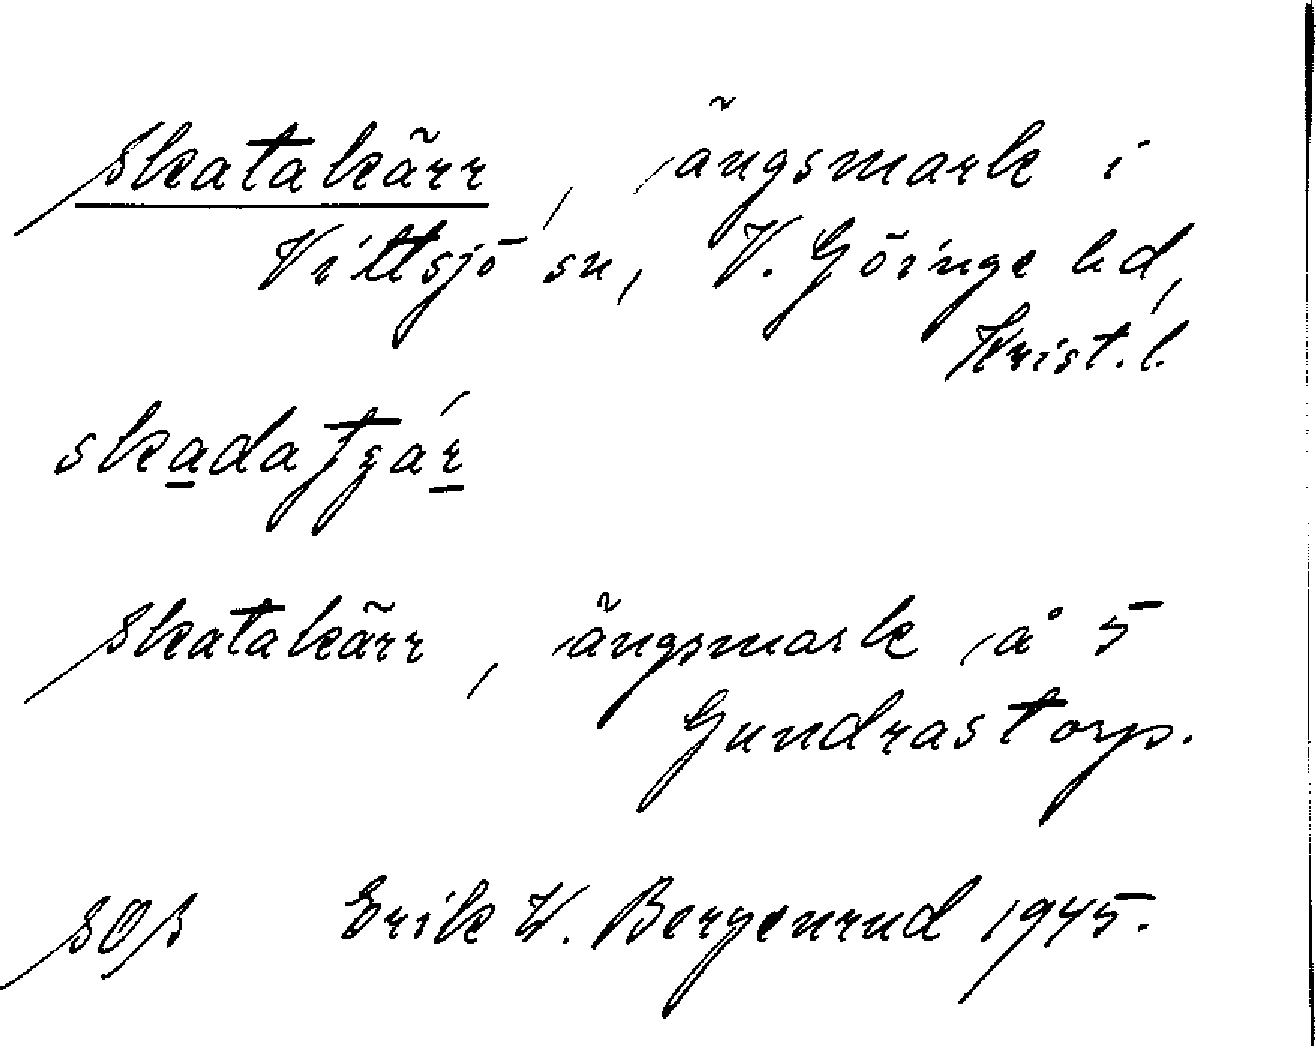 Skatakärr, ängsmark i
Vittsjö sn, V. Göinge hd,
Krist. l.
Skatakärr, ängsmark å 5
Gundrastorp.
SOS Erik W. Bergenrud 1945.